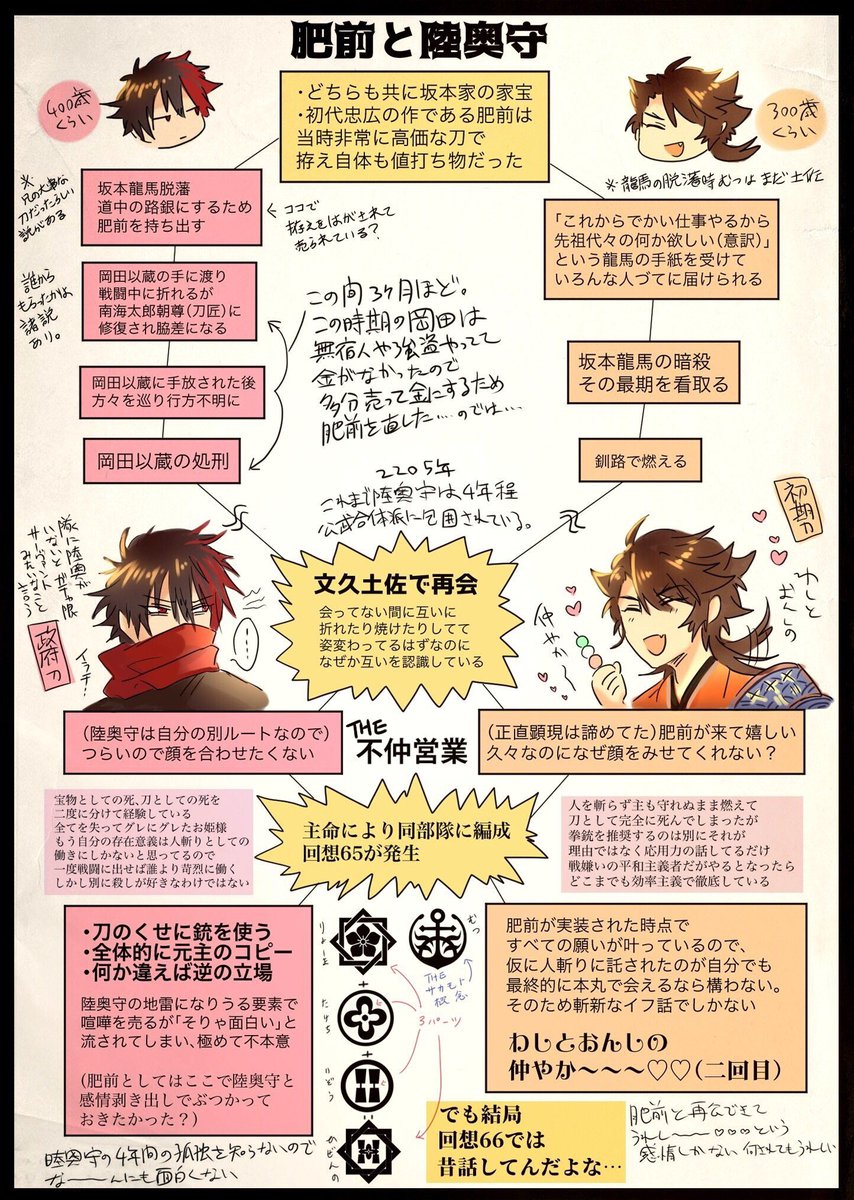 肥前と陸奥守
400歳
くらい
300歳
くらい
・どちらも共に坂本家の家宝
・初代忠広の作である肥前は
当時非常に高価な刀で
拵え自体も値打ち物だった
※
兄の大事な
刀だったらしい
説がある
坂本龍馬脱藩
道中の路銀にするため
肥前を持ち出す
←ココで
拵えをはがされて
売られている?
※龍馬の脱藩時むつはまだ土佐
「これからでかい仕事やるから
先祖代々の何か欲しい(意訳)」
という龍馬の手紙を受けて
いろんな人づてに届けられる
誰から
もらったかは
諸説
あり。
岡田以蔵の手に渡り
戦闘中に折れるが
南海太郎朝尊(刀匠)に
修復され脇差になる
この間3ヶ月ほど。
この時期の岡田は
無宿人や強盗やってて
金がなかったので
多分売って金にするため
肥前を直した…のでは…
坂本龍馬の暗殺
その最期を看取る
岡田以蔵に手放された後
方々を巡り行方不明に
岡田以蔵の処刑
釧路で燃える
2205年
これまで陸奥守は4年程
公武合体派に包囲されている。
初期刀
隊に陸奥が
いないとが無限
サーヴァント
みたいなこと
言う
政府刀
イラチ!
文久土佐で再会
会ってない間に互いに
折れたり焼けたりしてて
姿変わってるはずなのに
なぜか互いを認識している
わしと
おんしの
仲やか〜
(陸奥守は自分の別ルートなので)
つらいので顔を合わせたくない
THE
不仲営業
(正直顕現は諦めてた)肥前が来て嬉しい
久々なのになぜ顔をみせてくれない?
宝物としての死、刀としての死を
二度に分けて経験している
全てを失ってグレにグレたお姫様
もう自分の存在意義は人斬りとしての
働きにしかないと思ってるので
一度戦闘に出せば誰より苛烈に働く
しかし別に殺しが好きなわけではない
主命により同部隊に編成
回想65が発生
人を斬らず主も守れぬまま燃えて
刀として完全に死んでしまったが
拳銃を推奨するのは別にそれが
理由ではなく応用力の話してるだけ
戦嫌いの平和主義者だがやるとなったら
どこまでも効率主義で徹底している
・刀のくせに銃を使う
・全体的に元主のコピー
・何か違えば逆の立場
陸奥守の地雷になりうる要素で
喧嘩を売るが「そりゃ面白い」と
流されてしまい、極めて不本意
(肥前としてはここで陸奥守と
感情剥き出しでぶつかって
おきたかった?)
りょーま
むつ
THE
サカモト
概念
+
たけち
3パーツ
+
いぞう
ひぜんの
肥前が実装された時点で
すべての願いが叶っているので、
仮に人斬りに託されたのが自分でも
最終的に本丸で会えるなら構わない。
そのため斬新なイフ話でしかない
わしとおんしの
仲やか〜〜〜♡♡(二回目)
でも結局
回想66では
昔話してんだよな…
陸奥守の4年間の孤独を知らないので
な――んにも面白くない
肥前と再会できて
うれしーー♡♡♡という
感情しかない 何されてもうれしい